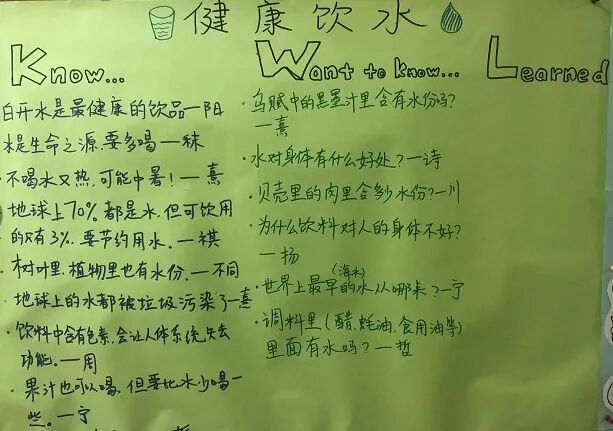 健康饮水
Know...
白开水是最健康的饮品—阳
水是生命之源,要多喝—秣
不喝水又热,可能中暑!—熹
地球上70%都是水,但可饮用
的只有3%,要节约用水。—祺
树叶里,植物里也有水份。—不同
地球上的水都被垃圾污染了—熹
饮料中含有色素,会让人体系统失去
功能。—周
果汁也可以喝,但要比水少喝一
些。—宁
Want to know...
乌贼中的黑墨汁里含有水份吗?
—熹
水对身体有什么好处?—诗
贝壳里的肉里含多少水份?—川
为什么饮料对人的身体不好?
—扬
世界上最早的(海水)水从哪来?—宁
调料里(醋、蚝油、食用油等)
里面有水吗?—哲
Learned